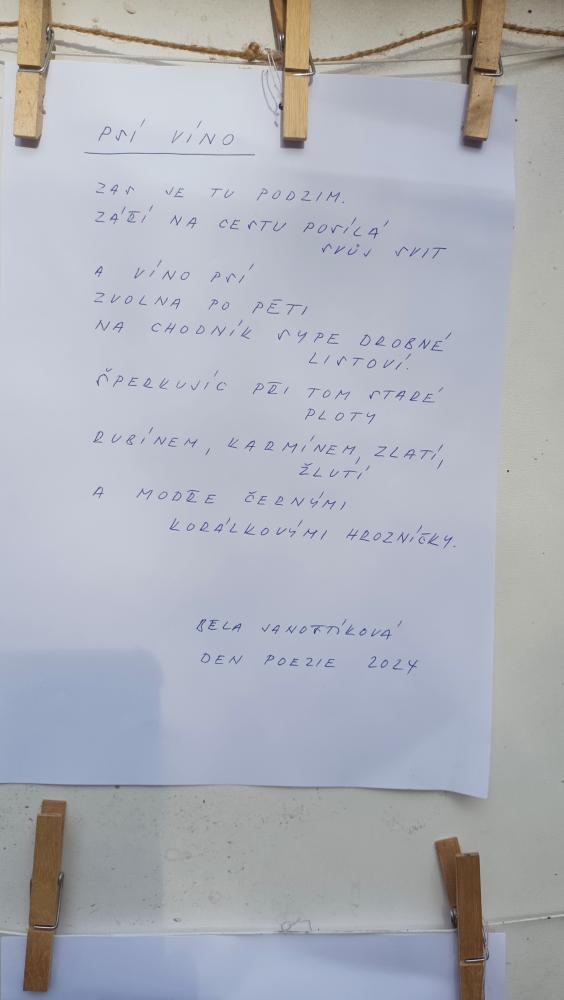 PSÍ VÍNO
ZAS JE TU PODZIM.
ZÁŘÍ NA CESTU POSÍLÁ
SVŮJ SVIT
A VÍNO PSÍ
ZVOLNA PO PĚTI
NA CHODNÍK SYPE DROBNÉ
LISTOVÍ.
ŠPERKUJÍC PŘI TOM STARÉ
PLOTY
RUBÍNEM, KARMÍNEM, ZLATÍ,
ŽLUTÍ
A MODŘE ČERNÝMI
KORÁLKOVÝMI HROZNÍČKY.
BELA JANOŠTÍKOVÁ
DEN POEZIE 2024